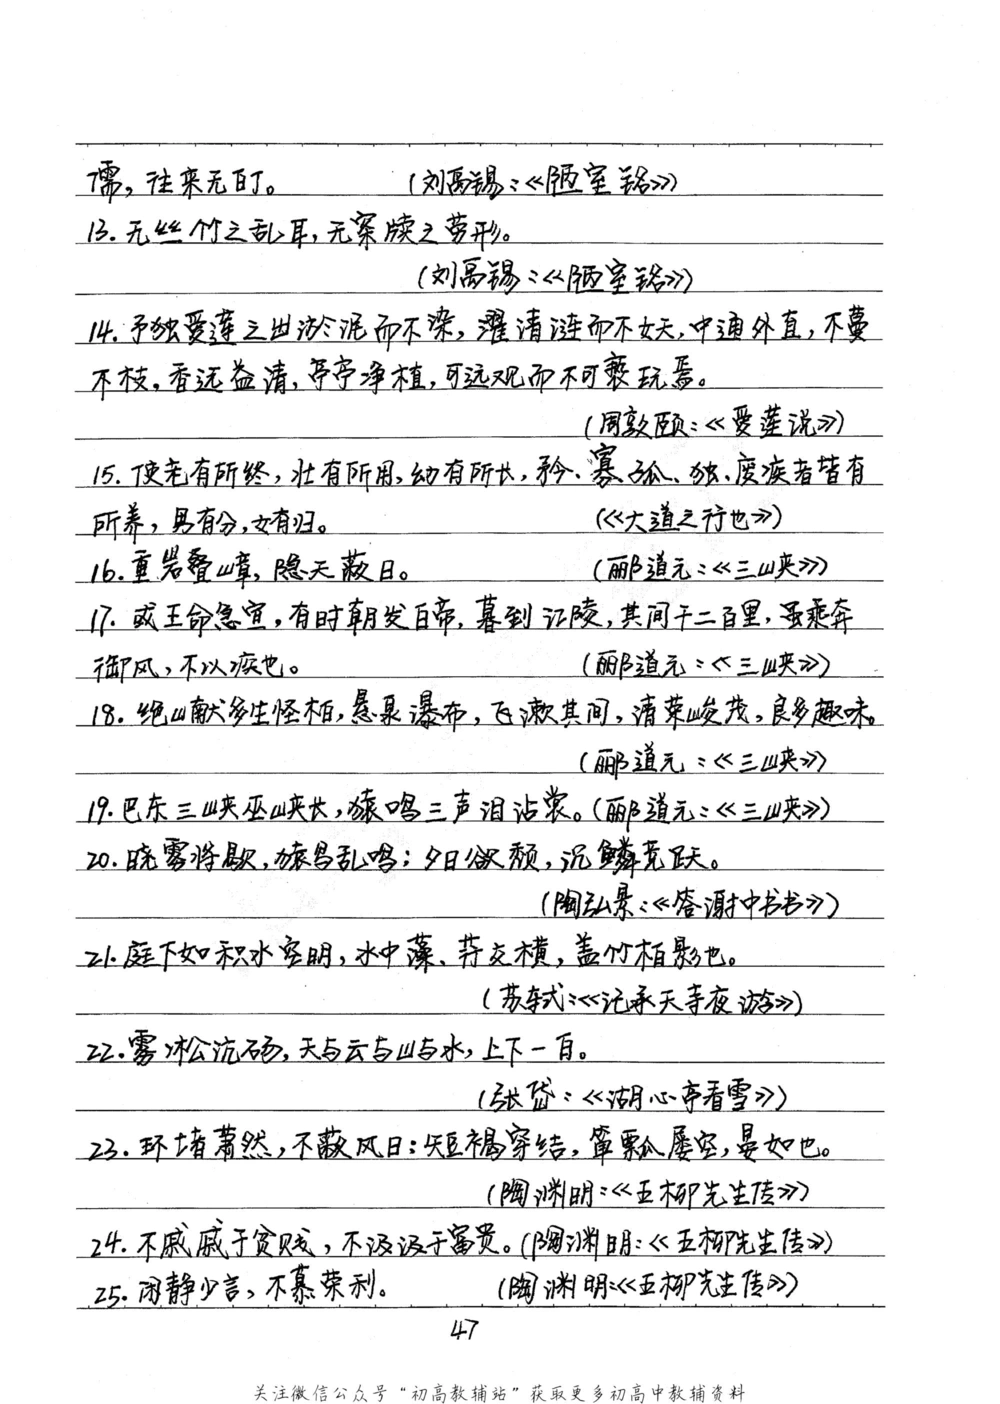 儒，往来无白丁。 (刘禹锡：《陋室铭》)
13.无丝竹之乱耳，无案牍之劳形。
(刘禹锡：《陋室铭》)
14.予独爱莲之出淤泥而不染，濯清涟而不妖，中通外直，不蔓
不枝，香远益清，亭亭净植，可远观而不可亵玩焉。
(周敦颐：《爱莲说》)
15.使老有所终，壮有所用，幼有所长，矜、寡、孤、独、废疾者皆有
所养，男有分，女有归。 (《大道之行也》)
16.重岩叠嶂，隐天蔽日。 (郦道元：《三峡》)
17.或王命急宣，有时朝发白帝，暮到江陵，其间千二百里，虽乘奔
御风，不以疾也。 (郦道元：《三峡》)
18.绝巘多生怪柏，悬泉瀑布，飞漱其间，清荣峻茂，良多趣味。
(郦道元：《三峡》)
19.巴东三峡巫峡长，猿鸣三声泪沾裳。(郦道元：《三峡》)
20.晓雾将歇，猿鸟乱鸣；夕日欲颓，沉鳞竞跃。
(陶弘景：《答谢中书书》)
21.庭下如积水空明，水中藻、荇交横，盖竹柏影也。
(苏轼：《记承天寺夜游》)
22.雾凇沆砀，天与云与山与水，上下一白。
(张岱：《湖心亭看雪》)
23.环堵萧然，不蔽风日；短褐穿结，箪瓢屡空，晏如也。
(陶渊明：《五柳先生传》)
24.不戚戚于贫贱，不汲汲于富贵。(陶渊明：《五柳先生传》)
25.闲静少言，不慕荣利。 (陶渊明：《五柳先生传》)
47
关注微信公众号“初高教辅站”获取更多初高中教辅资料